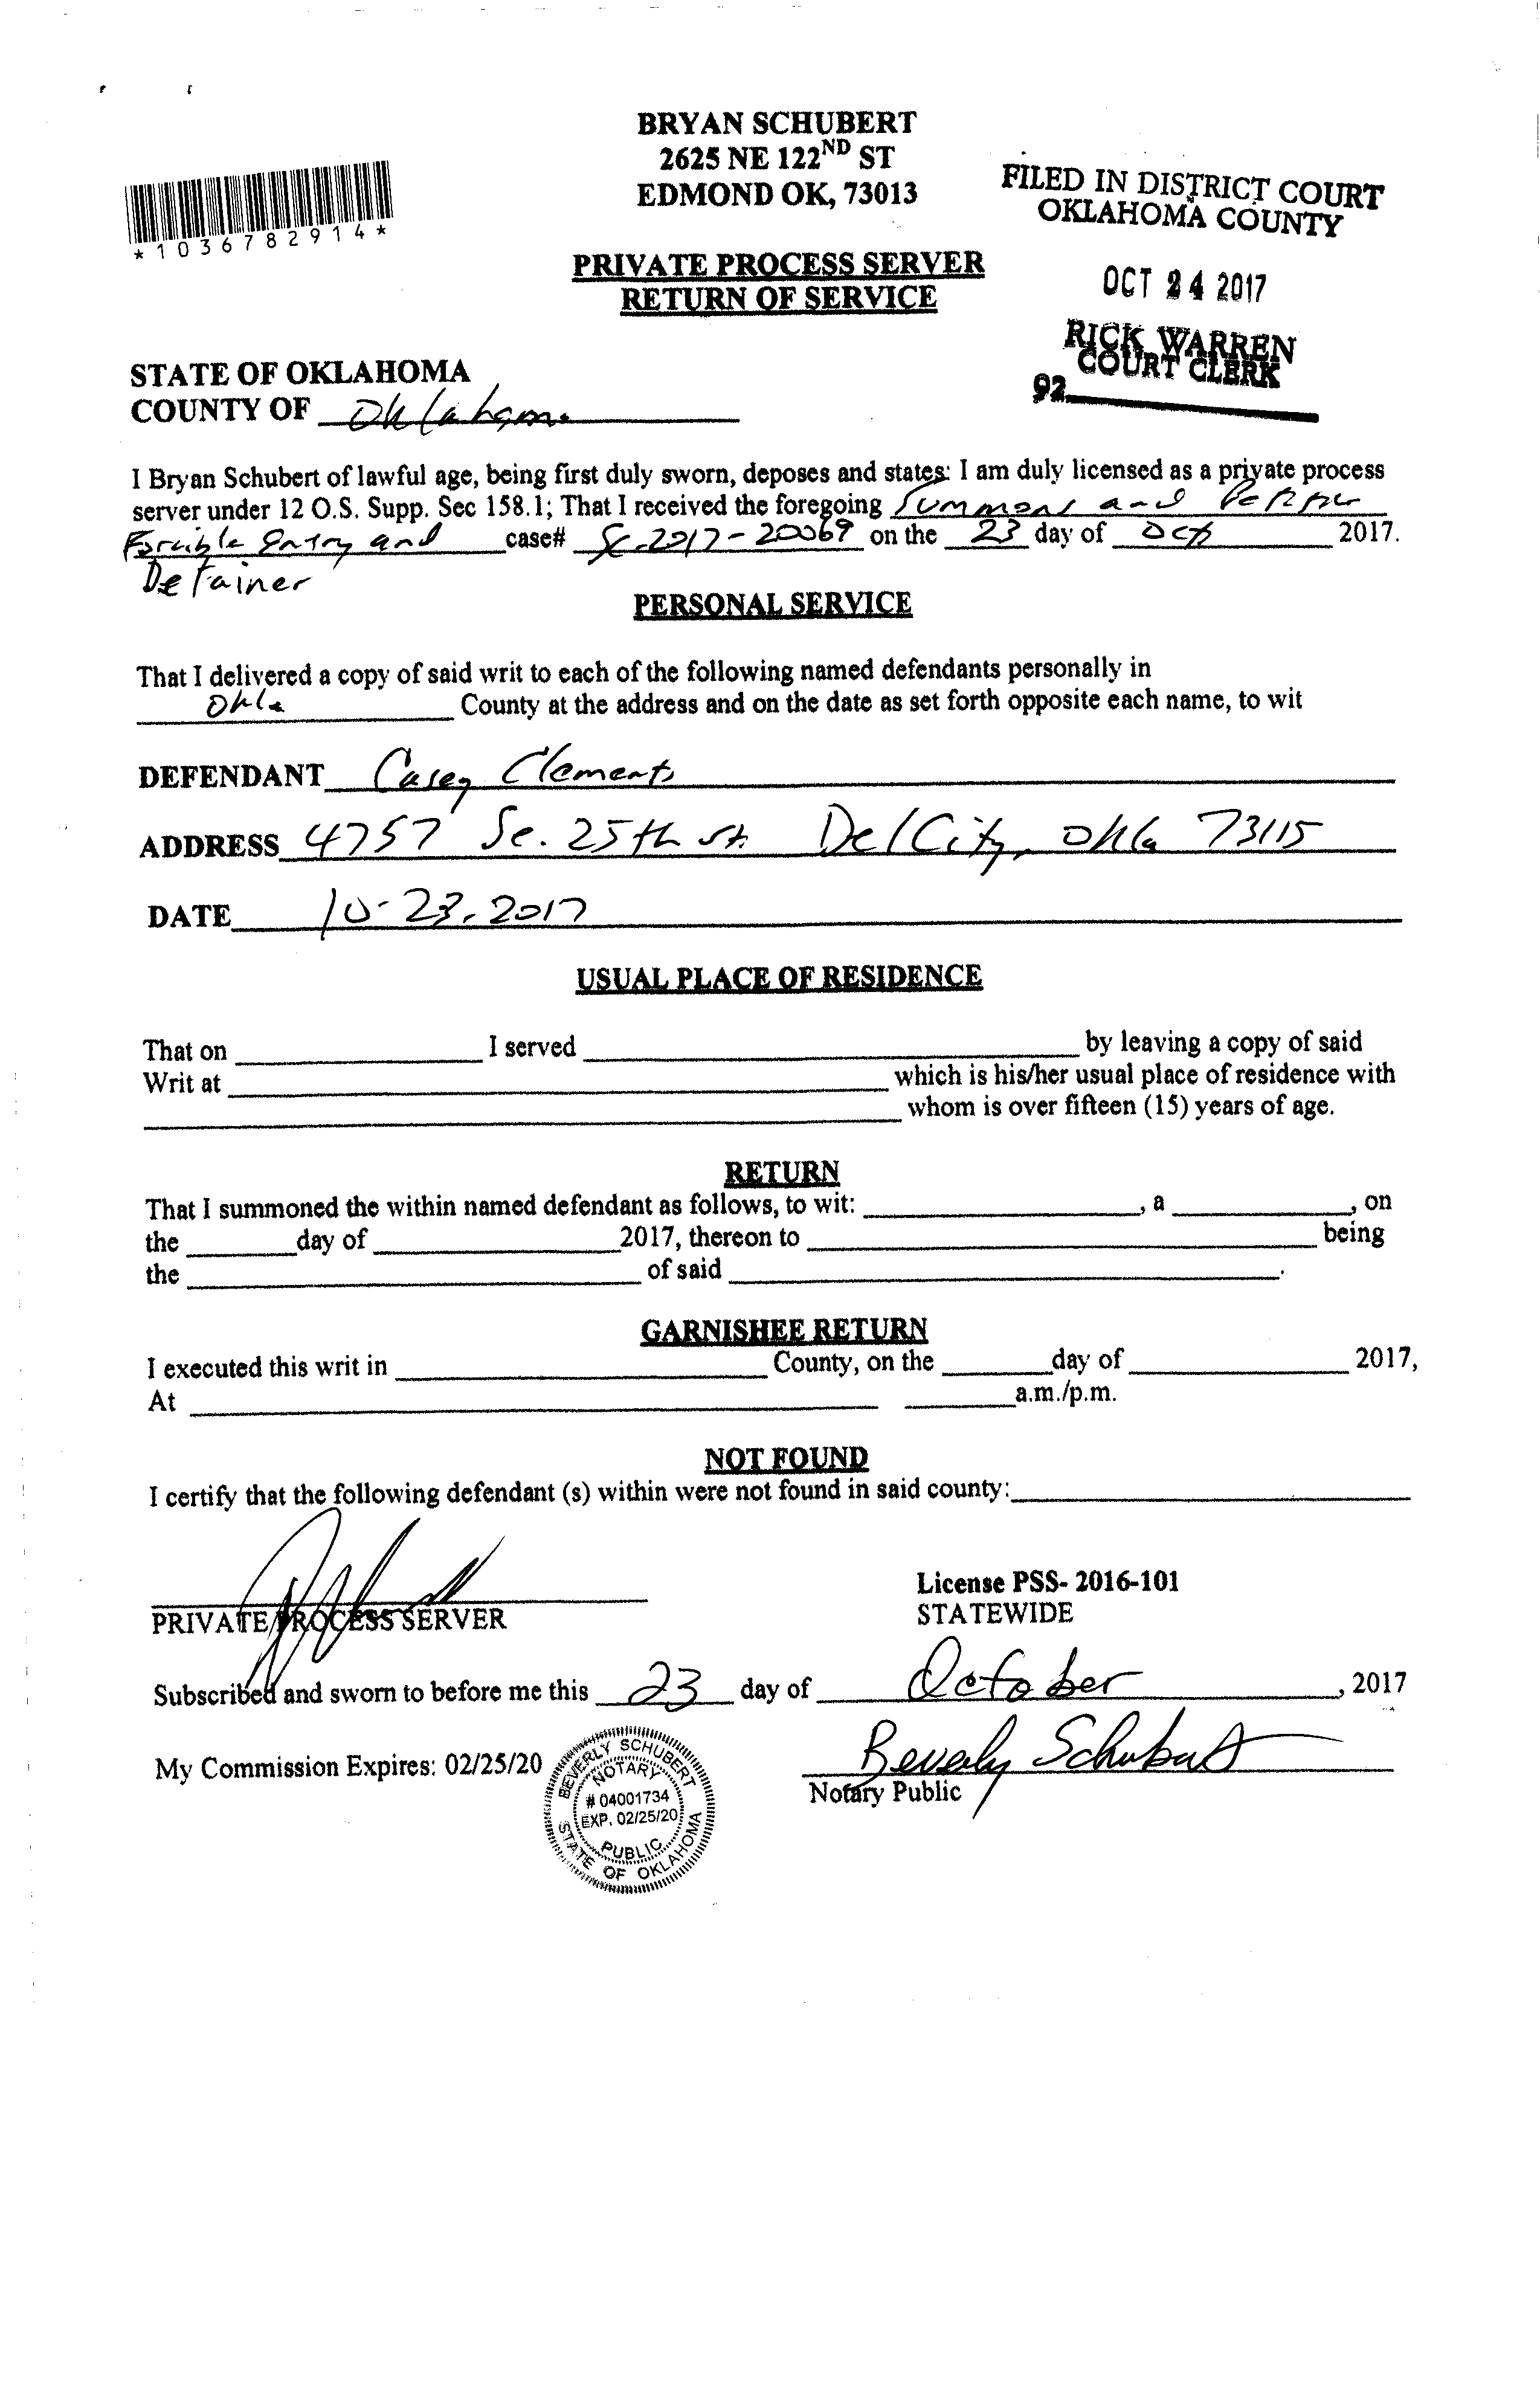 BRYAN SCHUBERT
2625 NE 122ND ST
EDMOND OK, 73013
*1036782914*
FILED IN DISTRICT COURT
OKLAHOMA COUNTY
OCT 24 2017
RICK WARREN
COURT CLERK
92
PRIVATE PROCESS SERVER
RETURN OF SERVICE
STATE OF OKLAHOMA
COUNTY OF Oklahoma
I Bryan Schubert of lawful age, being first duly sworn, deposes and states: I am duly licensed as a private process
server under 12 O.S. Supp. Sec 158.1; That I received the foregoing Summons and
Forcible Entry and case# SC-2017-20069 on the 23 day of Oct 2017.
Detainer
PERSONAL SERVICE
That I delivered a copy of said writ to each of the following named defendants personally in
Okla County at the address and on the date as set forth opposite each name, to wit
DEFENDANT Casey Clements
ADDRESS 4757 Se. 25th st. Del City, Okla 73115
DATE 10-23-2017
USUAL PLACE OF RESIDENCE
That on I served by leaving a copy of said
Writ at which is his/her usual place of residence with
whom is over fifteen (15) years of age.
RETURN
That I summoned the within named defendant as follows, to wit: , a , on
the day of 2017, thereon to being
the of said .
GARNISHEE RETURN
I executed this writ in County, on the day of 2017,
At a.m./p.m.
NOT FOUND
I certify that the following defendant (s) within were not found in said county:
PRIVATE PROCESS SERVER
License PSS- 2016-101
STATEWIDE
Subscribed and sworn to before me this 23 day of October, 2017
My Commission Expires: 02/25/20
BEVERLY SCHUBERT
NOTARY
# 04001734
EXP. 02/25/20
PUBLIC
STATE OF OKLAHOMA
Beverly Schubert
Notary Public